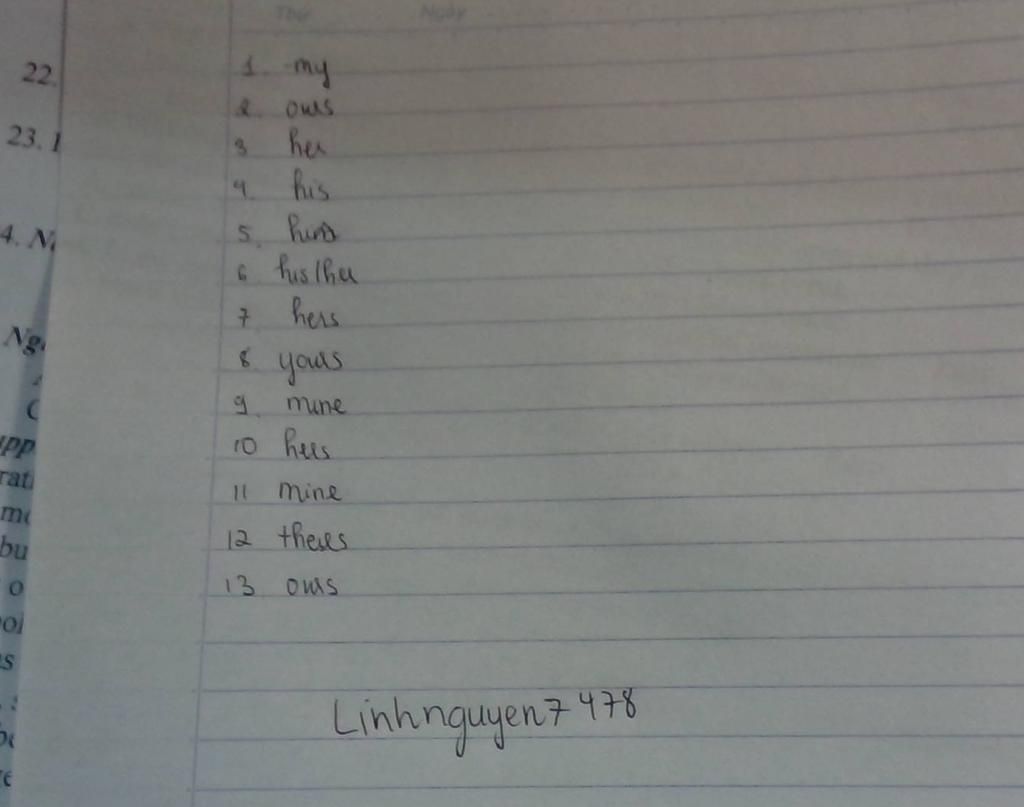 Thứ Ngày
22.
23.
4.
1. my
2. ours
3 her
4. his
5.
6 his/her
7 hers
8. yours
9. mine
10 hers
11 mine
12
13 ours
Linhnguyen7478